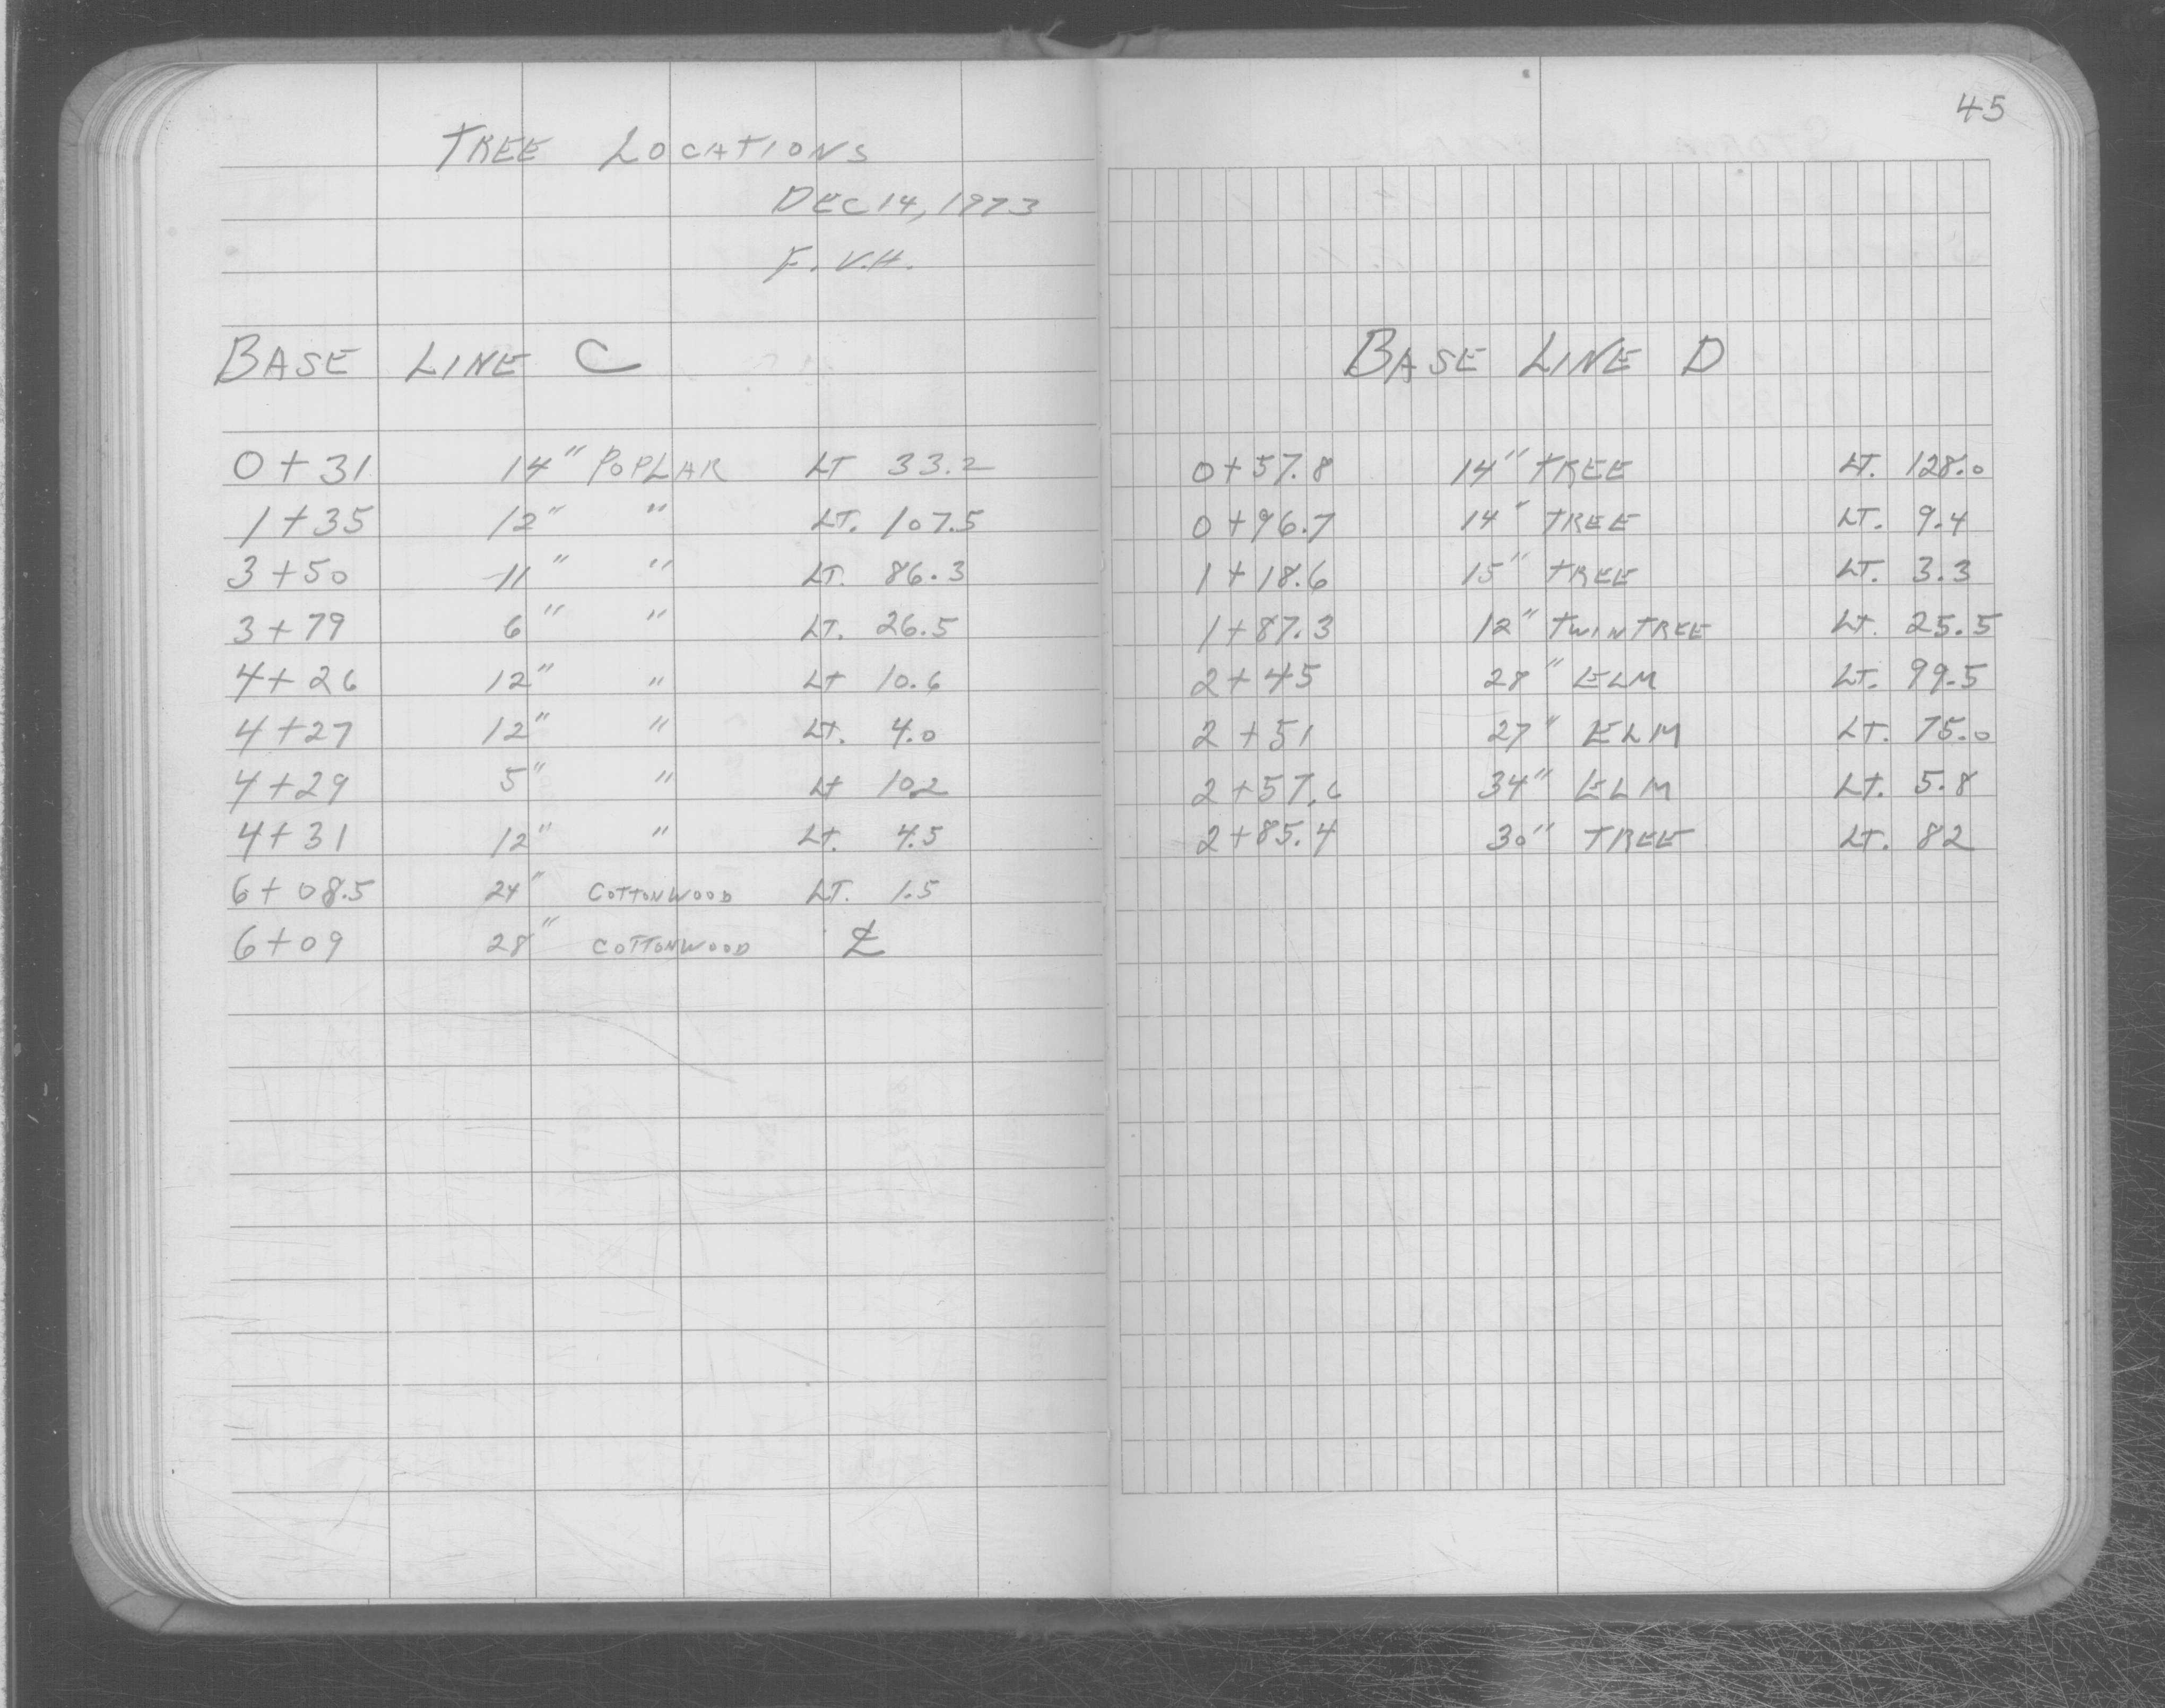 TREE LOCATIONS
DEC 14, 1973
F. V.H.
BASE LINE C
0+31 14" POPLAR LT 33.2
1+35 12" " LT. 107.5
3+50 11" " LT. 86.3
3+79 6" " LT. 26.5
4+26 12" " LT 10.6
4+27 12" " LT. 4.0
4+29 5" " LT 10.2
4+31 12" " LT. 4.5
6+08.5 24" COTTONWOOD LT. 1.5
6+09 28" COTTONWOOD ℄
45
BASE LINE D
0+57.8 14" TREE LT. 128.0
0+96.7 14" TREE LT. 9.4
1+18.6 15" TREE LT. 3.3
1+87.3 12" TWIN TREE LT. 25.5
2+45 28" ELM LT. 99.5
2+51 27" ELM LT. 75.0
2+57.6 34" ELM LT. 5.8
2+85.4 30" TREE LT. 82